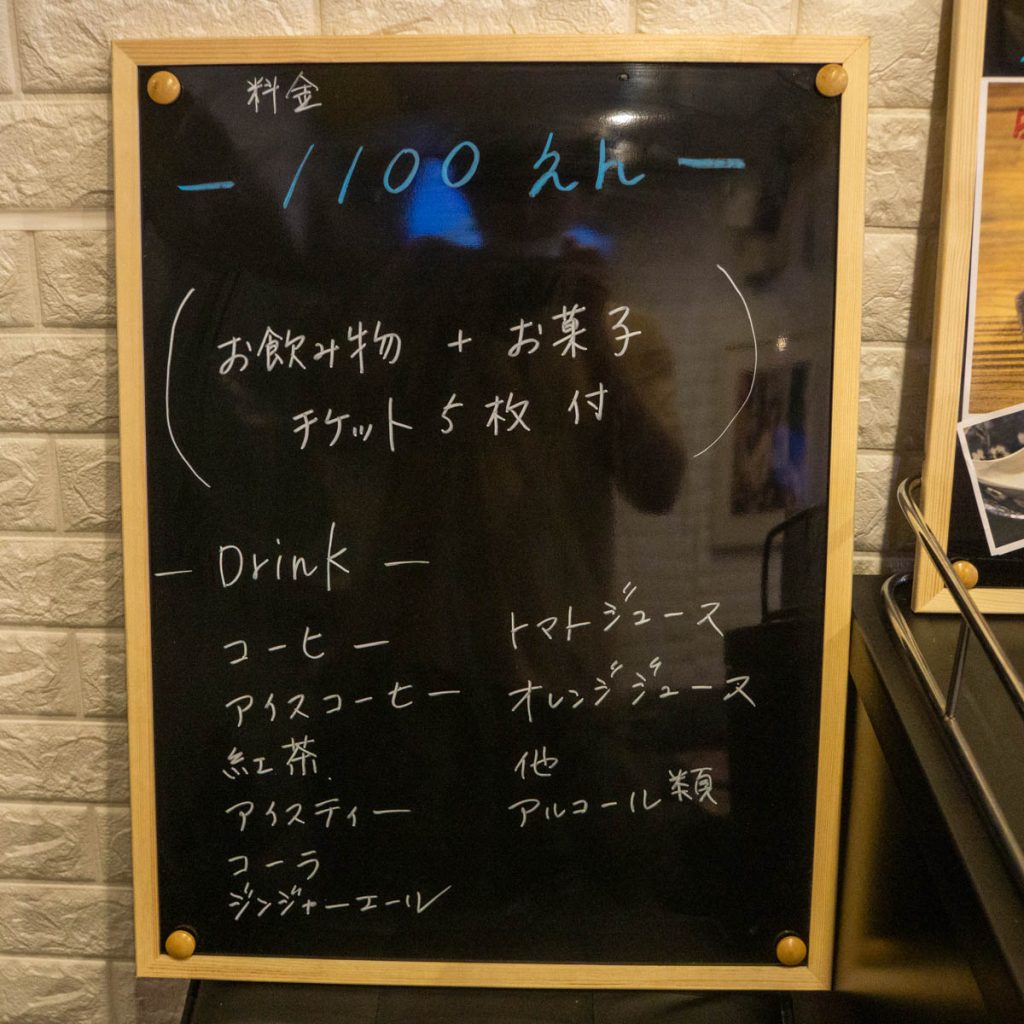 料金
ー 1100 えん ー
(お飲み物 + お菓子
チケット 5枚 付)
ー Drink ー
コーヒー
アイスコーヒー
紅茶
アイスティー
コーラ
ジンジャーエール
トマトジュース
オレンジジュース
他
アルコール類